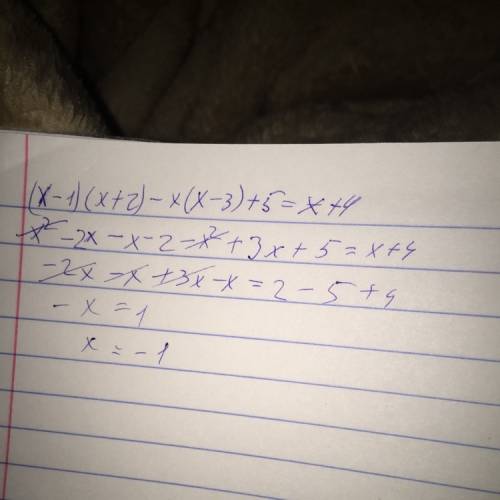 (x-1)(x+2)-x(x-3)+5=x+4
x²-2x-x-2-x²+3x+5=x+4
-2x-x+3x-x=2-5+4
-x=1
x=-1